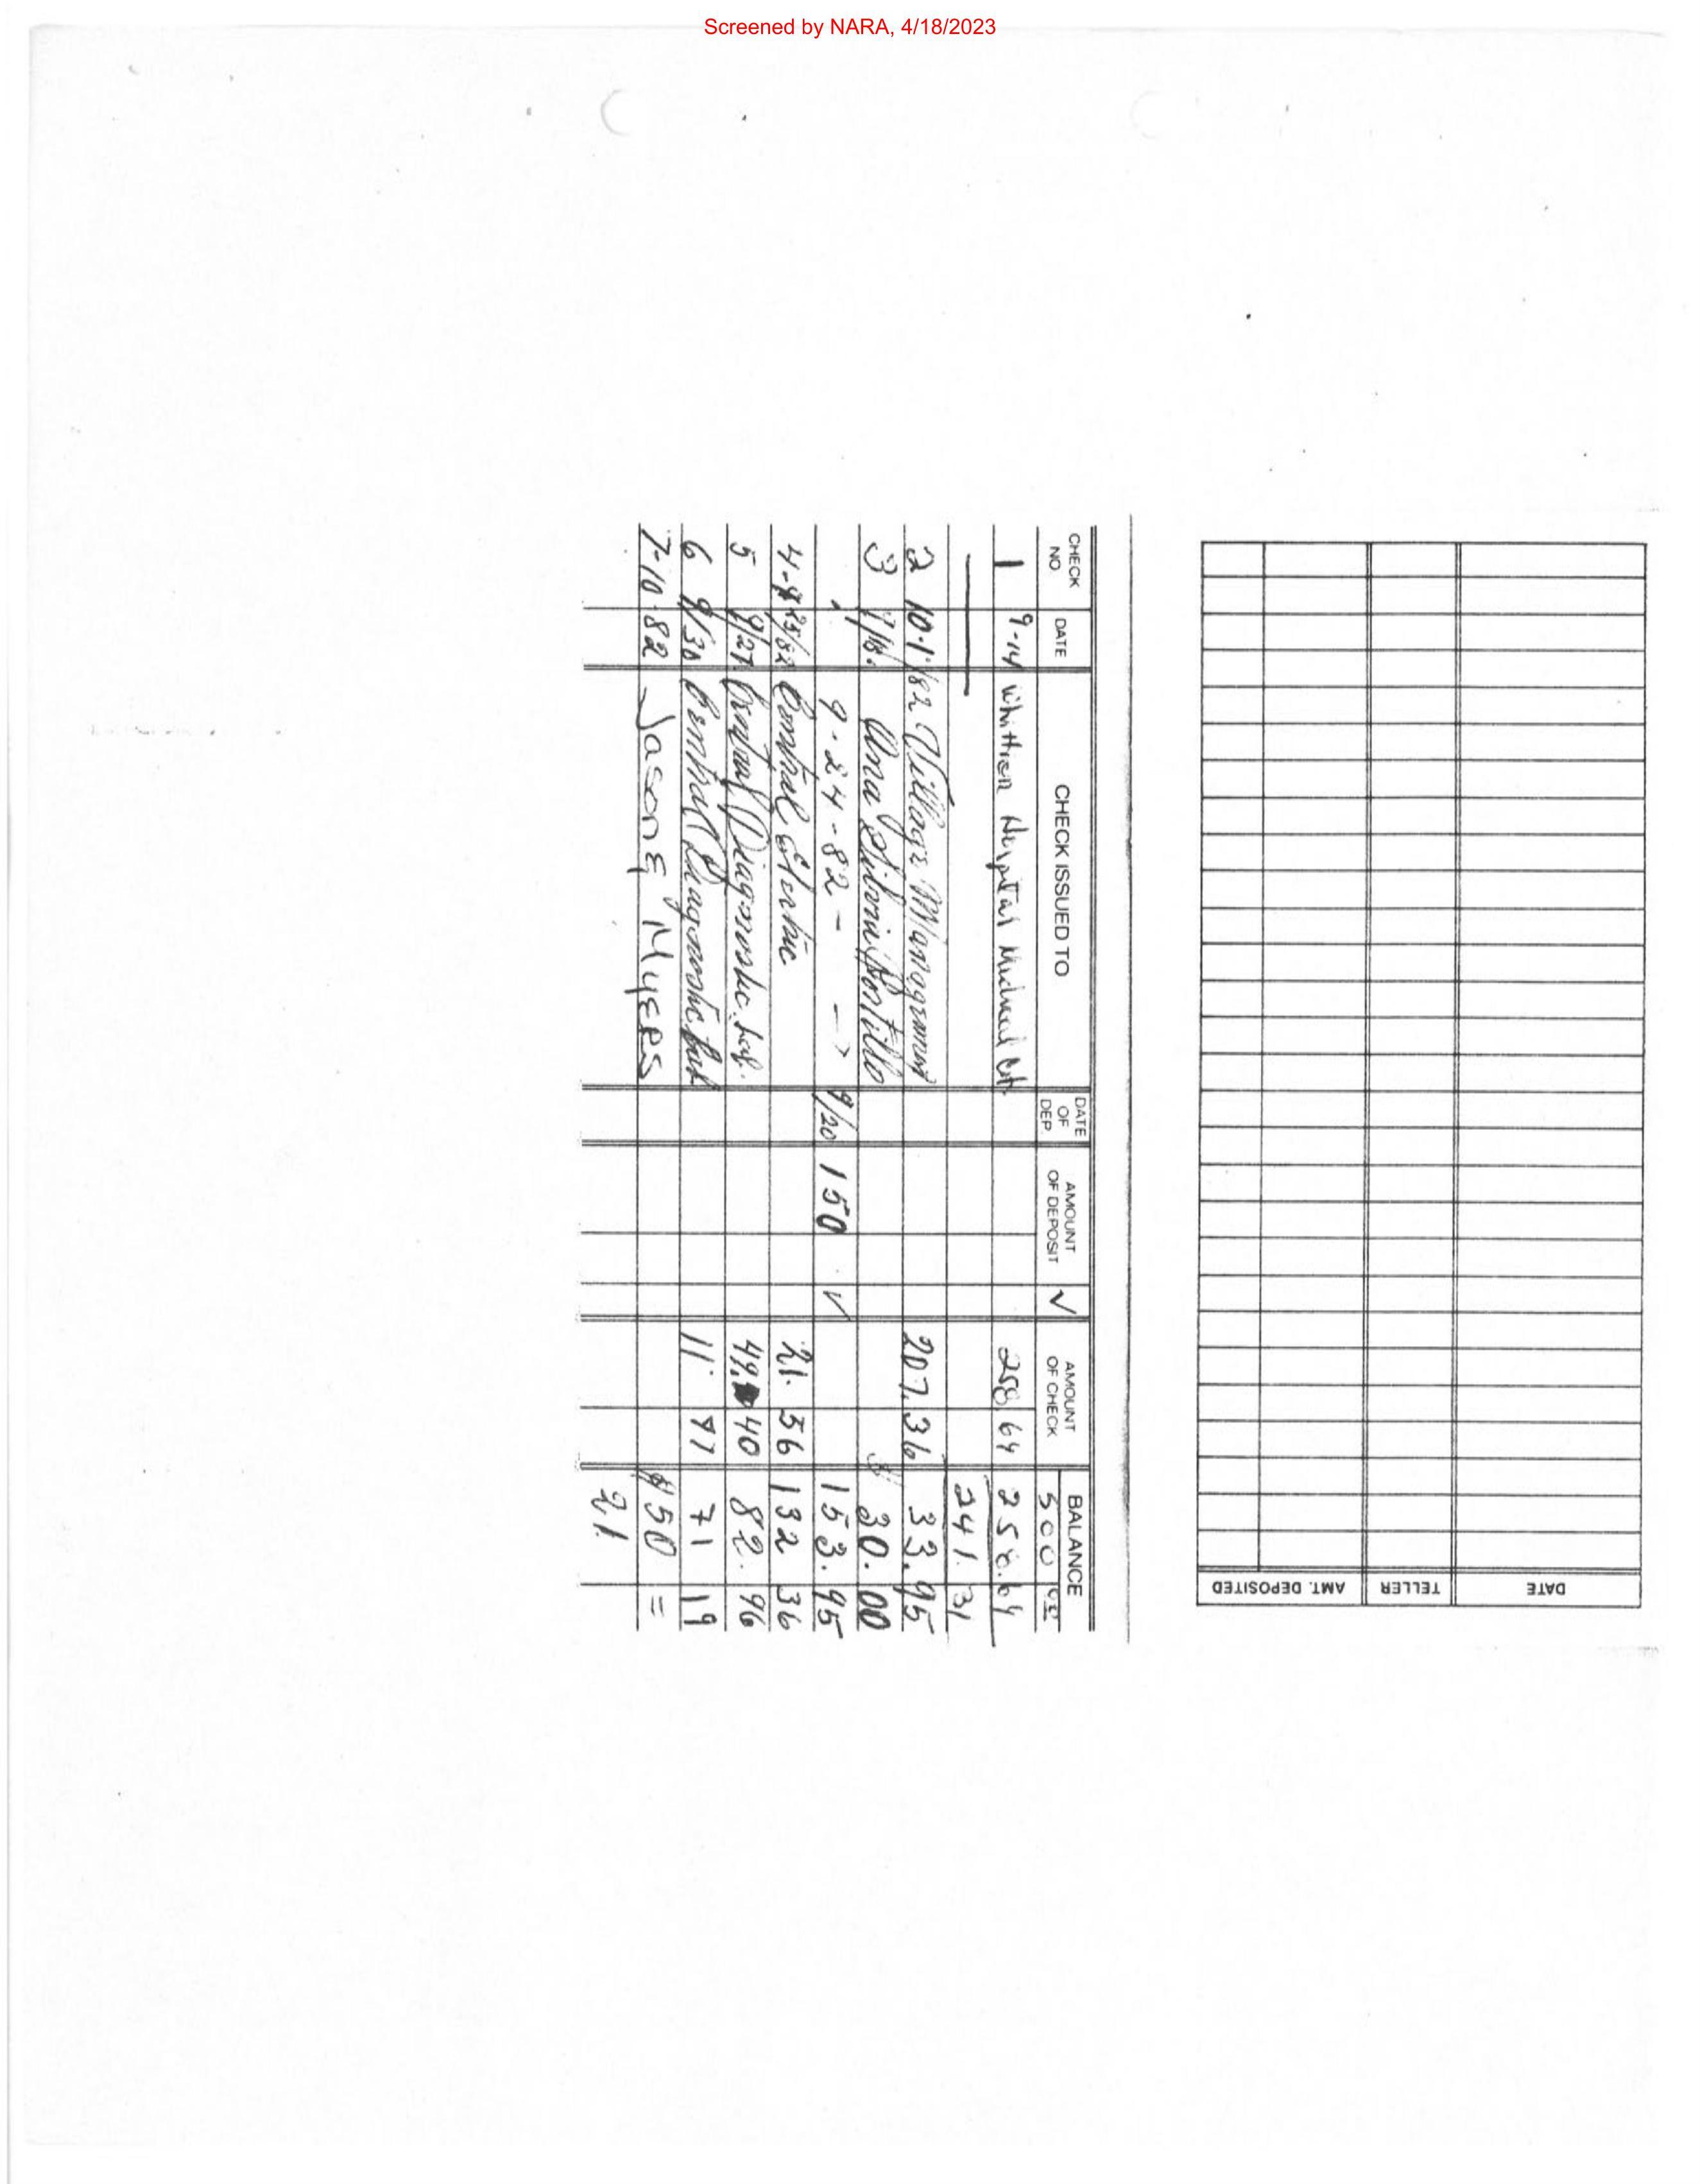 Screened by NARA, 4/18/2023
CHECK NO DATE CHECK ISSUED TO DATE OF DEP. AMOUNT OF DEPOSIT ✓ AMOUNT OF CHECK BALANCE
500
1 9-14 Whittier Hospital Medical 258.64 258.64
241.31
2 10-1/82 Village Management 207.36 33.95
3 Ana Portillo 30.00
9-24-82 - → 9/20 150 ✓ 153.95
4- Central Electric 21.56 132 36
5 9/27 Diagnostic Lab. 49. 40 82.96
6 9/30 Central Diagnostic 11. 71 19
7-10-82 Jason Myers $50 =
21
DATE TELLER AMT. DEPOSITED